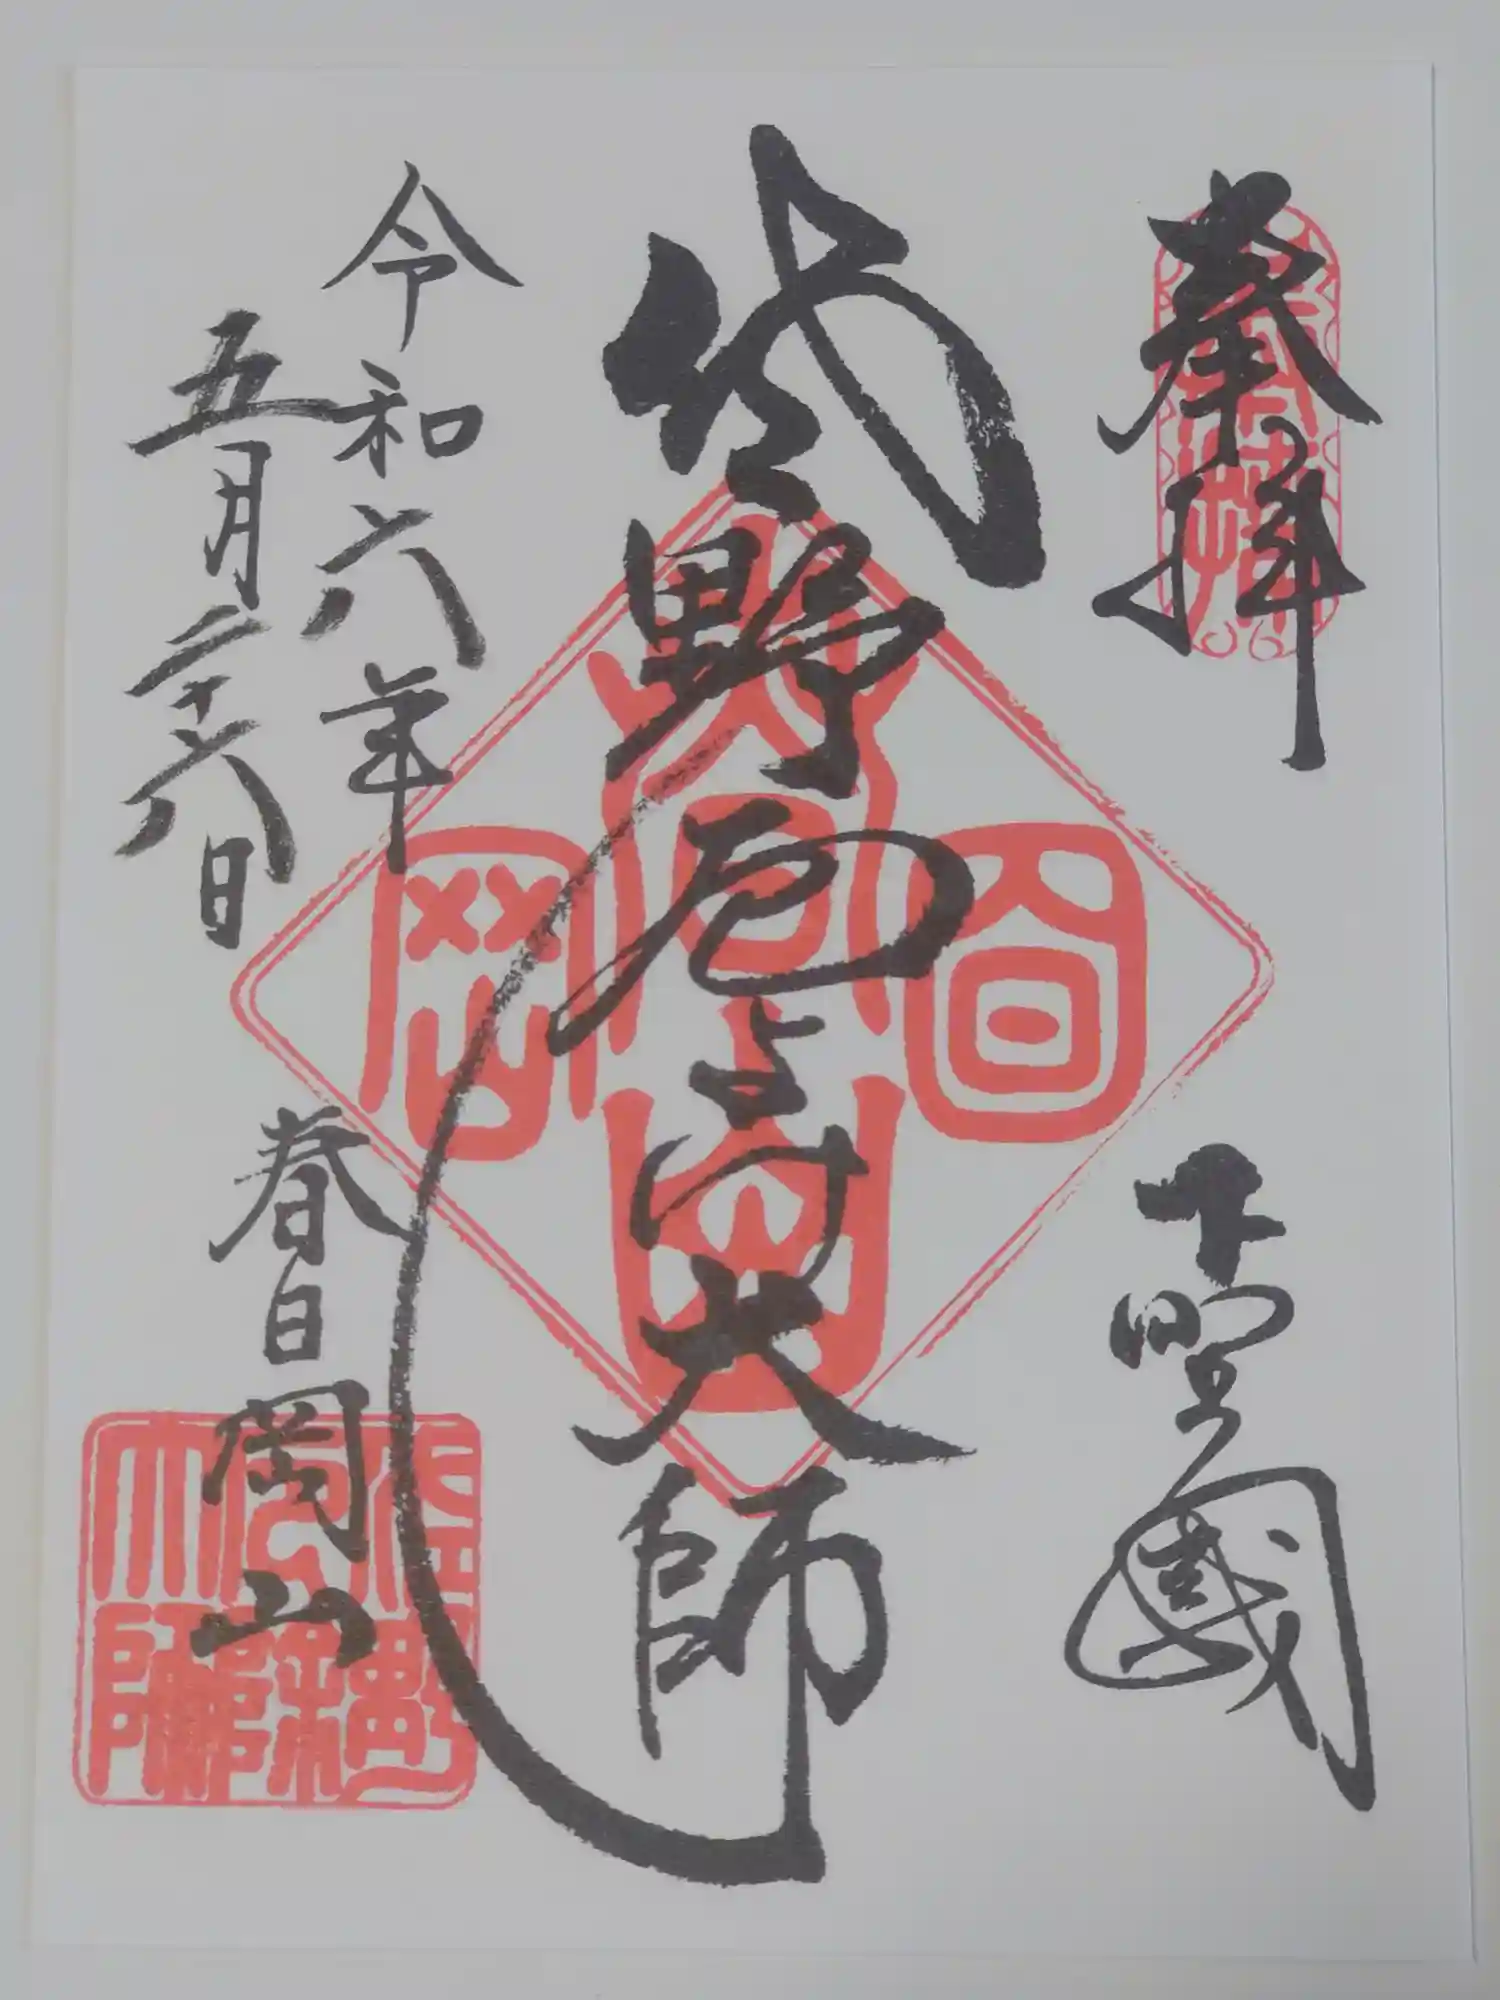 奉拝
下野國
佐野厄よけ大師
令和六年
五月二十六日
春日岡山